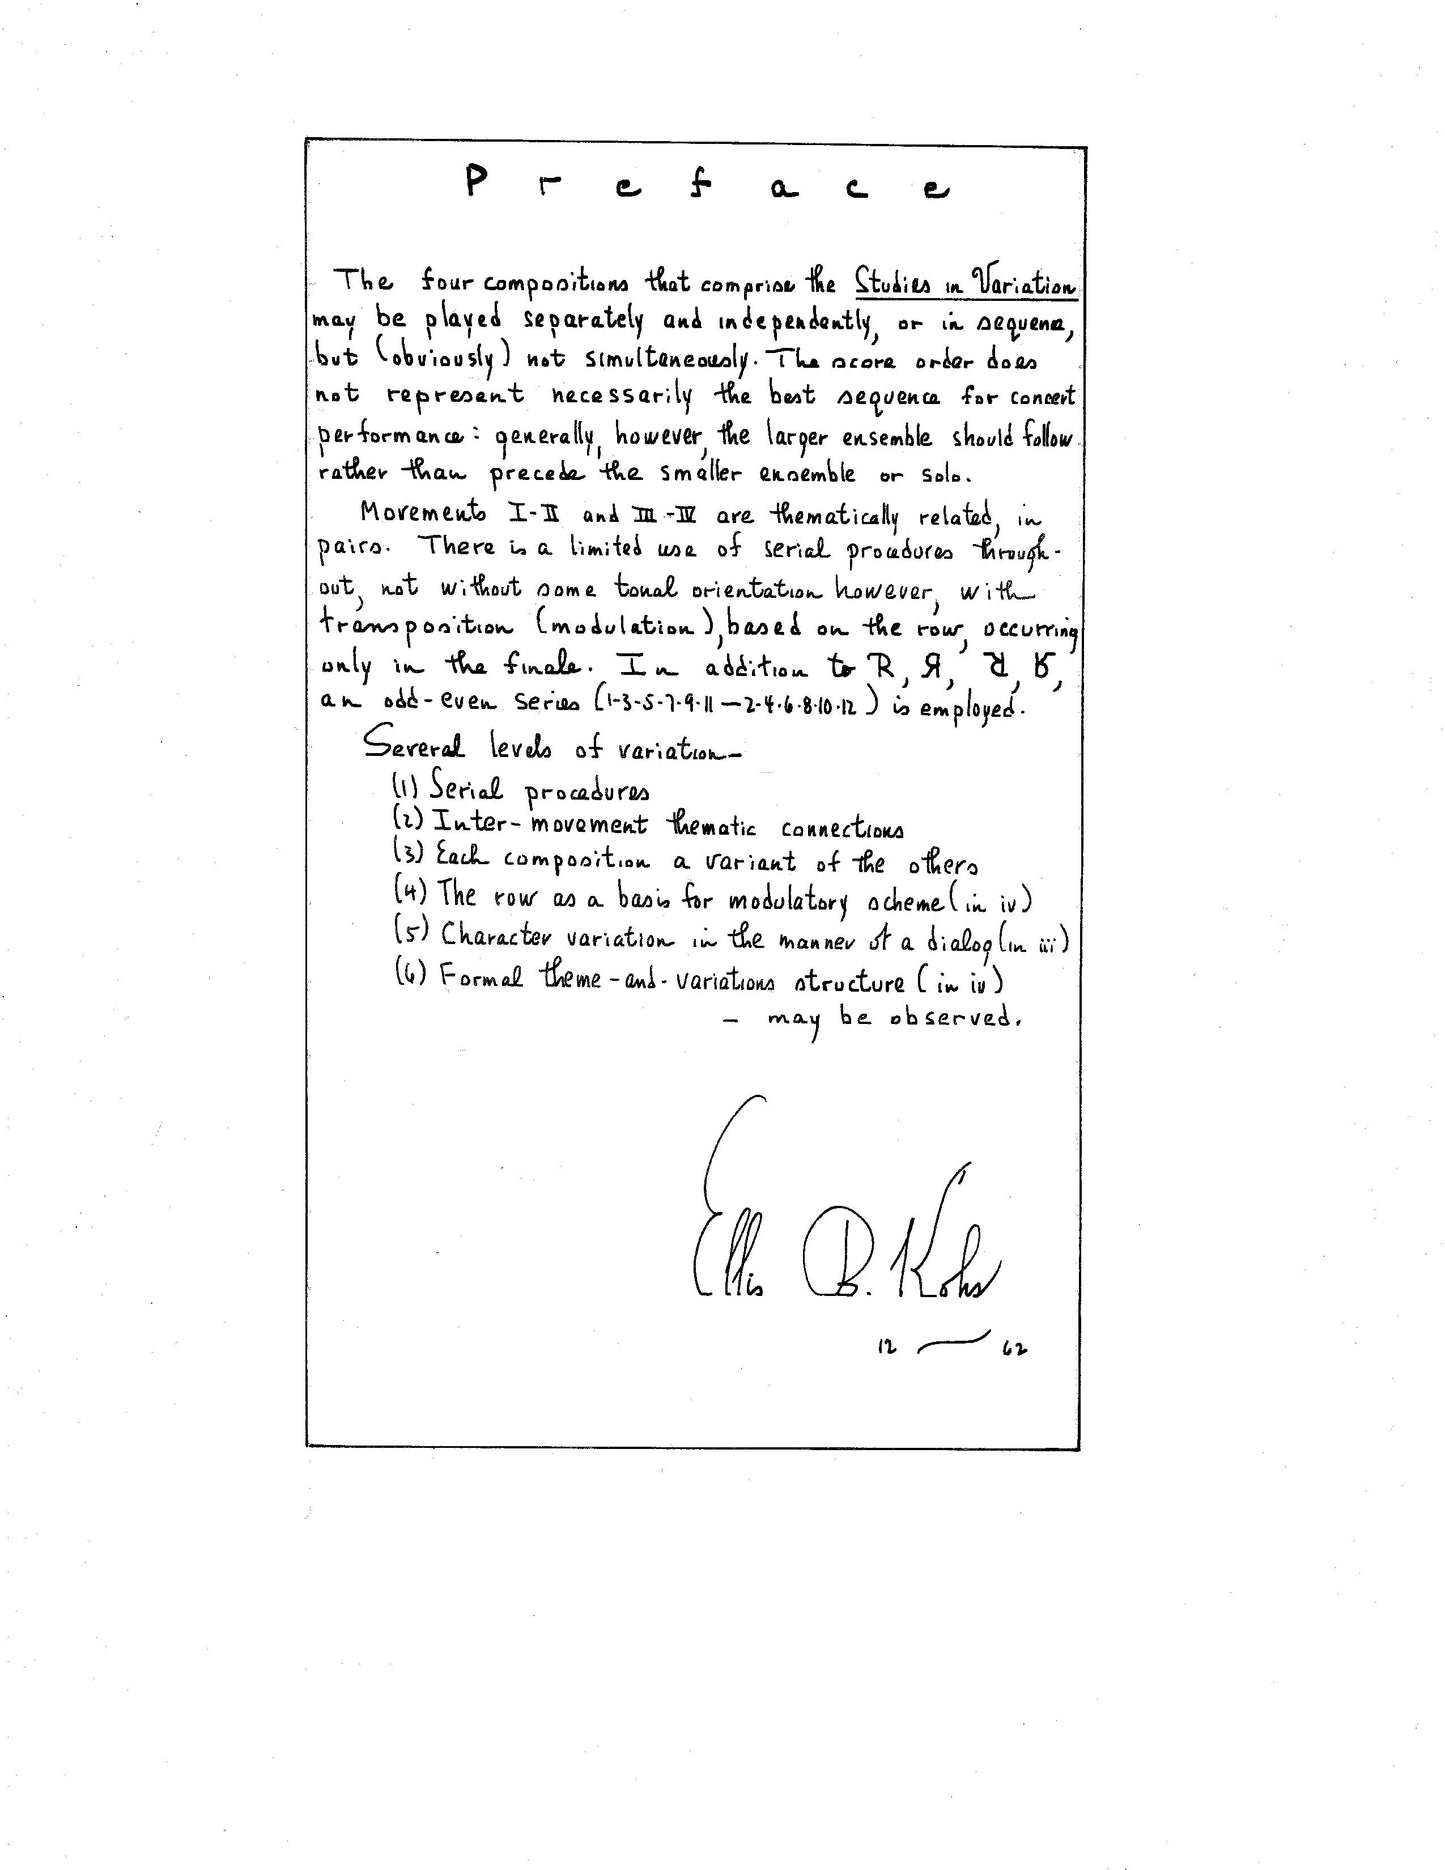 Preface
The four compositions that comprise the Studies in Variation
may be played separately and independently, or in sequence,
but (obviously) not simultaneously. The score order does
not represent necessarily the best sequence for concert
performance: generally, however, the larger ensemble should follow
rather than precede the smaller ensemble or solo.
Movements I-II and III-IV are thematically related, in
pairs. There is a limited use of serial procedures through-
out, not without some tonal orientation however, with
transposition (modulation), based on the row, occurring
only in the finale. In addition to R, Я, ᖉ, ᖇ,
an odd-even series (1-3-5-7-9-11—2-4-6-8-10-12) is employed.
Several levels of variation—
(1) Serial procedures
(2) Inter-movement thematic connections
(3) Each composition a variant of the others
(4) The row as a basis for modulatory scheme (in iv)
(5) Character variation in the manner of a dialog (in iii)
(6) Formal theme-and-variations structure (in iv)
— may be observed.
Ellis B. Kohs
12 — 62